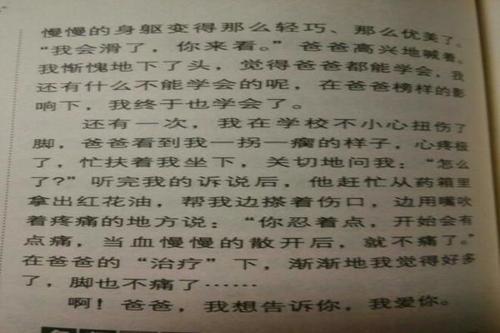 慢慢的身躯变得那么轻巧、那么优美了。
“我会滑了，你来看。”爸爸高兴地喊着。
我惭愧地下了头，觉得爸爸都能学会，我
还有什么不能学会的呢，在爸爸榜样的影
响下，我终于也学会了。
还有一次，我在学校不小心扭伤了
脚，爸爸看到我一拐一瘸的样子，心疼极
了，忙扶着我坐下，关切地问我：“怎么
了?”听完我的诉说后，他赶忙从药箱里
拿出红花油，帮我边搽着伤口，边用嘴吹
着疼痛的地方说：“你忍着点，开始会有
点痛，当血慢慢的散开后，就不痛了。”
在爸爸的“治疗”下，渐渐地我觉得好多
了，脚也不痛了……
啊！爸爸，我想告诉你，我爱你。